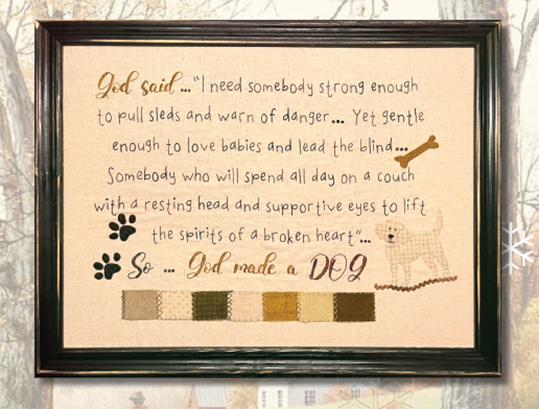 God said..."I need somebody strong enough
to pull sleds and warn of danger... Yet gentle
enough to love babies and lead the blind...
Somebody who will spend all day on a couch
with a resting head and supportive eyes to lift
the spirits of a broken heart"...
So ... God made a DOG